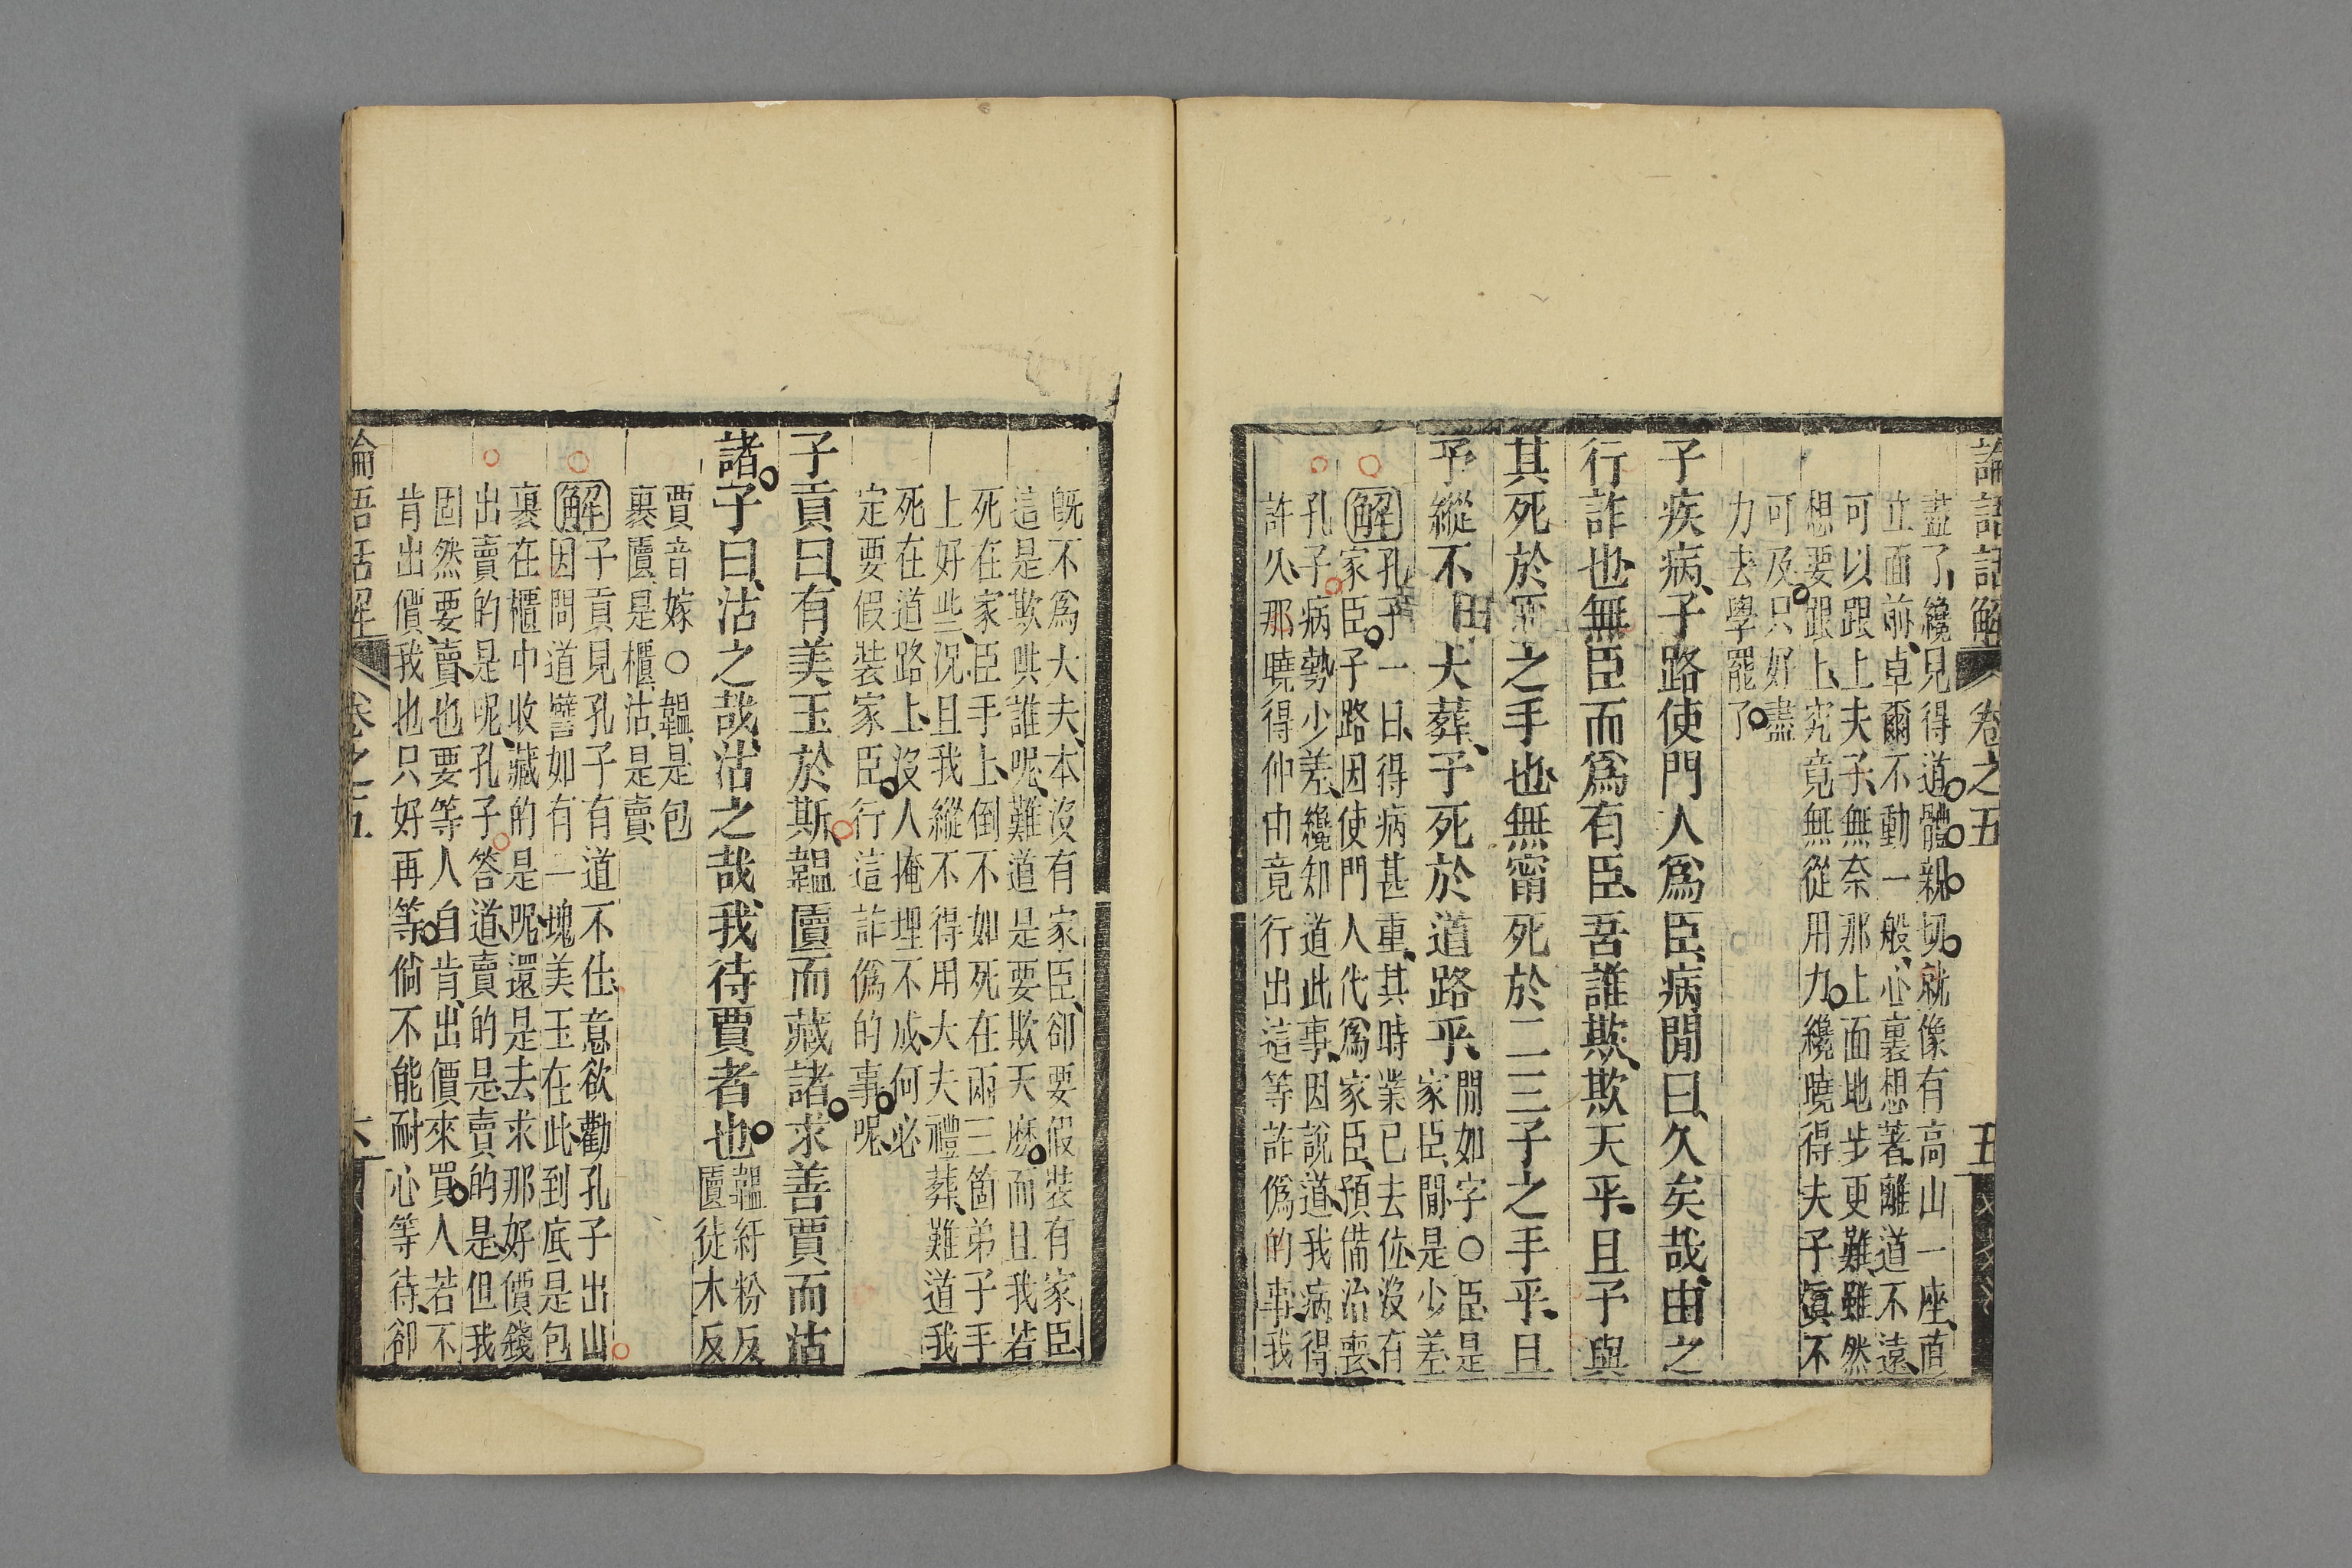 論語話解 卷之五 五
盡了纔見得道體親切就像有高山一座直
立面前卓爾不動一般心裏想著離道不遠
可以跟上夫子無奈那上面地步更難雖然
想要跟上究竟無從用力纔曉得夫子眞不
可及只好盡
力去學罷了
子疾病子路使門人爲臣病閒曰久矣哉由之
行詐也無臣而爲有臣吾誰欺欺天乎且予與
其死於臣之手也無甯死於二三子之手乎且
予縱不得大葬予死於道路乎
閒如字○臣是
家臣閒是少差
解
孔子一日得病甚重其時業已去位沒有
家臣子路因使門人代爲家臣預備治喪
孔子病勢少差纔知道此事因說道我病得
許久那曉得仲由竟行出這等詐僞的事我
旣不爲大夫本沒有家臣卻要假裝有家臣
這是欺哄誰呢難道是要欺天麽而且我若
死在家臣手上倒不如死在兩三箇弟子手
上好些況且我縱不得用大夫禮葬難道我
死在道路上沒人掩埋不成何必
定要假裝家臣行這詐僞的事呢
子貢曰有美玉於斯韞匵而藏諸求善賈而沽
諸子曰沽之哉沽之哉我待賈者也
韞紆粉反
匵徒木反
賈音嫁○韞是包
裹匵是櫃沽是賣
解
子貢見孔子有道不仕意欲勸孔子出山
因問道譬如有一塊美玉在此到底是包
裹在櫃中收藏的是呢還是去求那好價錢
出賣的是呢孔子答道賣的是賣的是但我
固然要賣也要等人自肯出價來買人若不
肯出價我也只好再等倘不能耐心等待卻
論語話解 卷之五 六